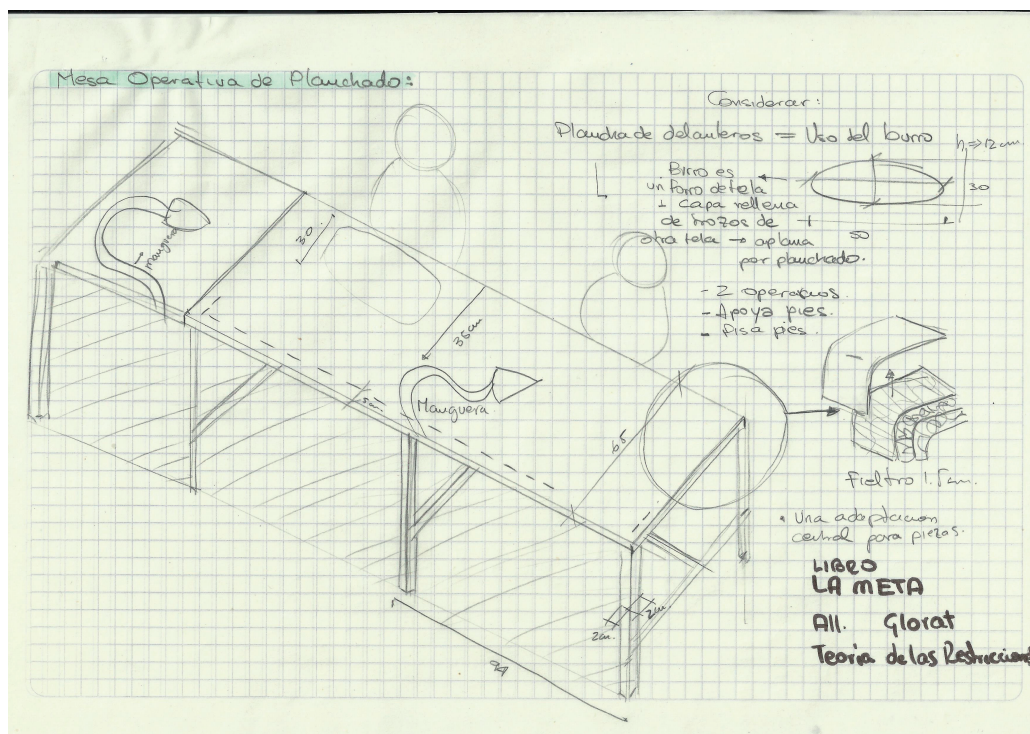 Mesa Operativa de Planchado:
Considerar:
Plancha de delanteros = Uso del burro
h => 12 cm
Burro es
un forro de tela
+ capa rellena
de trozos de
otra tela → aplana
por planchado.
30
50
- 2 operarios.
- Apoya pies.
- Pisa pies.
manguera
30.
35cm
5cm.
Manguera
65
2cm.
2cm.
94
Fieltro 1.5cm.
• Una adaptacion
central para piezas.
LIBRO
LA META
All. Glorat
Teoria de las Restricciones